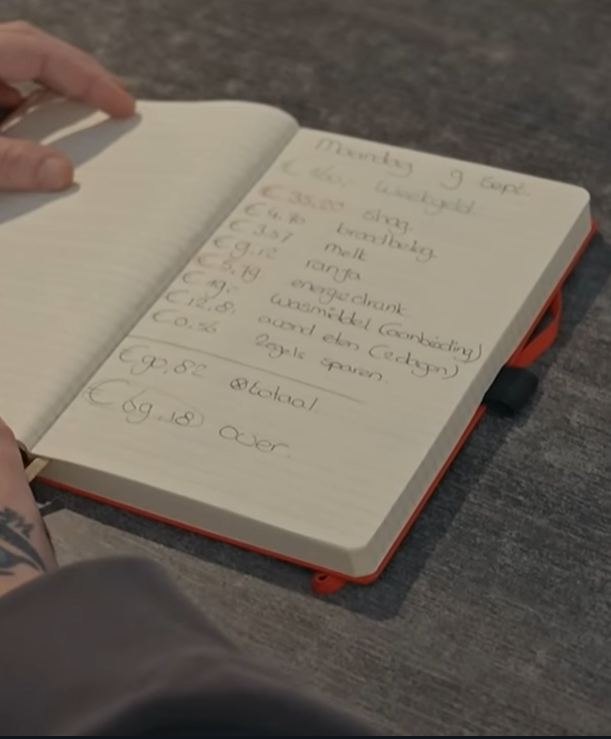 Maandag 9 Sept.
€ 160,- weekgeld.
€ 35,20 shag.
€ 4.70 broodbeleg.
€ 3.57 melk
€ 9,12 ranja
€ 5,79 energiedrank
€ 19,- wasmiddel (aanbieding)
€ 12,8 avond eten (2 dagen)
€ 0.56 Zegels sparen.
€ 90,82 totaal
€ 69.18 over.